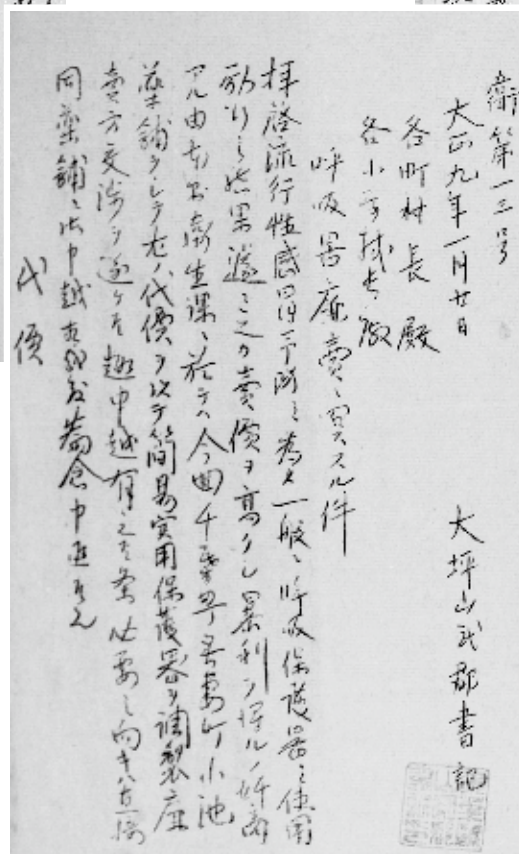 衛第一三号
大正九年一月廿日
大坪山武郡書記
各町村長殿
各小学校長殿
呼吸器廉売ニ関スル件
拝啓流行性感冒予防ノ為メ一般ニ呼吸保護器ノ使用
ヲ
結果 之カ売価ヲ高クシ暴利ヲ得ルノ奸商
アル由 衛生課ニ於テハ今回千葉町吾妻町小池
薬舗ヲシテ左ノ代價ヲ以テ簡易実用保護器ヲ調製廉
売方交渉ヲ遂ケ 趣申越有之 条必要ノ向キハ直接
同薬舗ニ申越 為念申進
代價